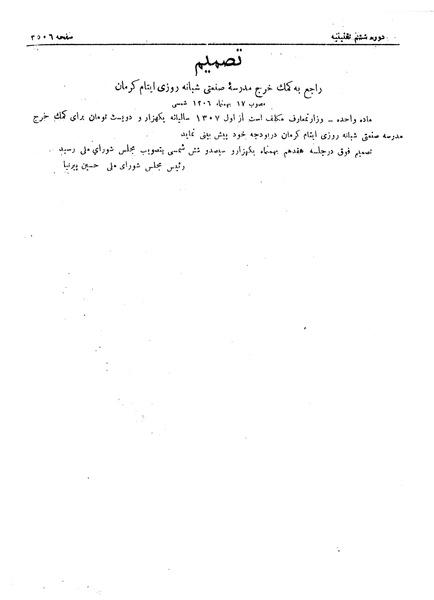 دوره ششم تقنینیه
صفحه ۳۵۰۶
تصمیم
راجع به کمك خرج مدرسهٔ صنعتی شبانه روزی ایتام کرمان
مصوب ۱۷ بهمنماه ۱۳۰۶ شمسی
ماده واحده – وزارتمعارف مکلف است از اول ۱۳۰۷ سالیانه یکهزار و دویست تومان برای کمك خرج
مدرسه صنعتی شبانه روزی ایتام کرمان دربودجه خود پیش بینی نماید
تصمیم فوق درجلسه هفدهم بهمنماه یکهزارو سیصدو شش شمسی بتصویب مجلس شورای ملی رسید
رئیس مجلس شورای ملی حسین پیرنیا